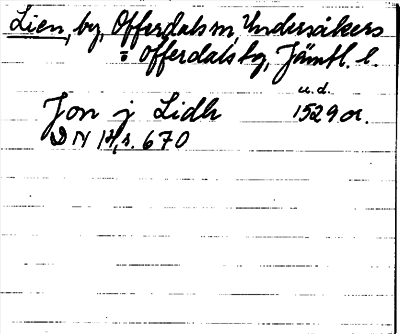 Lien, by, Offerdals sn, Undersåkers
o Offerdals tg, Jämtl. l.
u.d.
Jon j Lidh 1529 or.
DN 14, s. 670